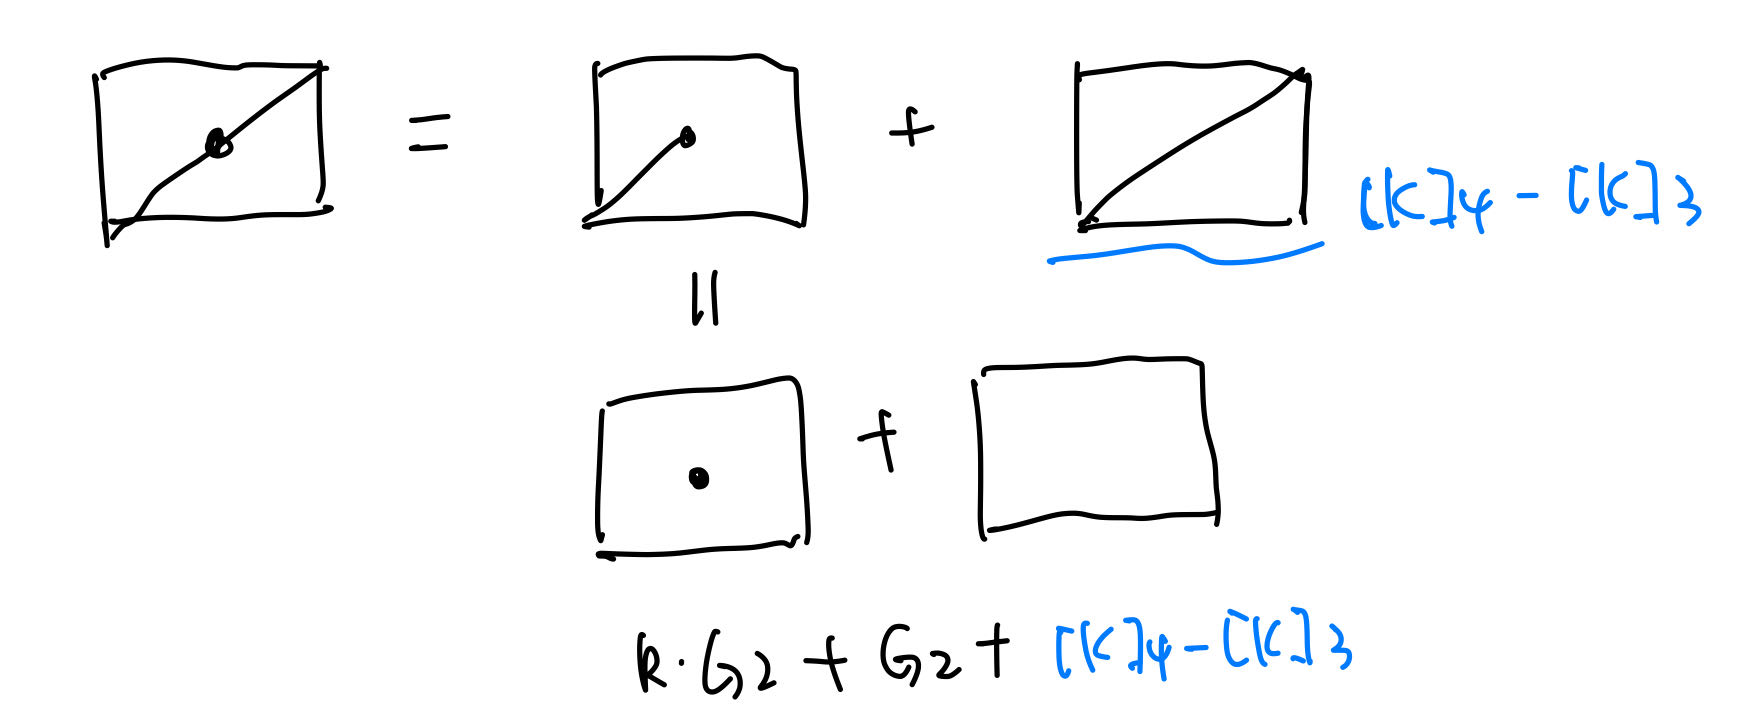 = +
[K]4 - [K]3
=
+
k·G2 + G2 + [K]4 - [K]3